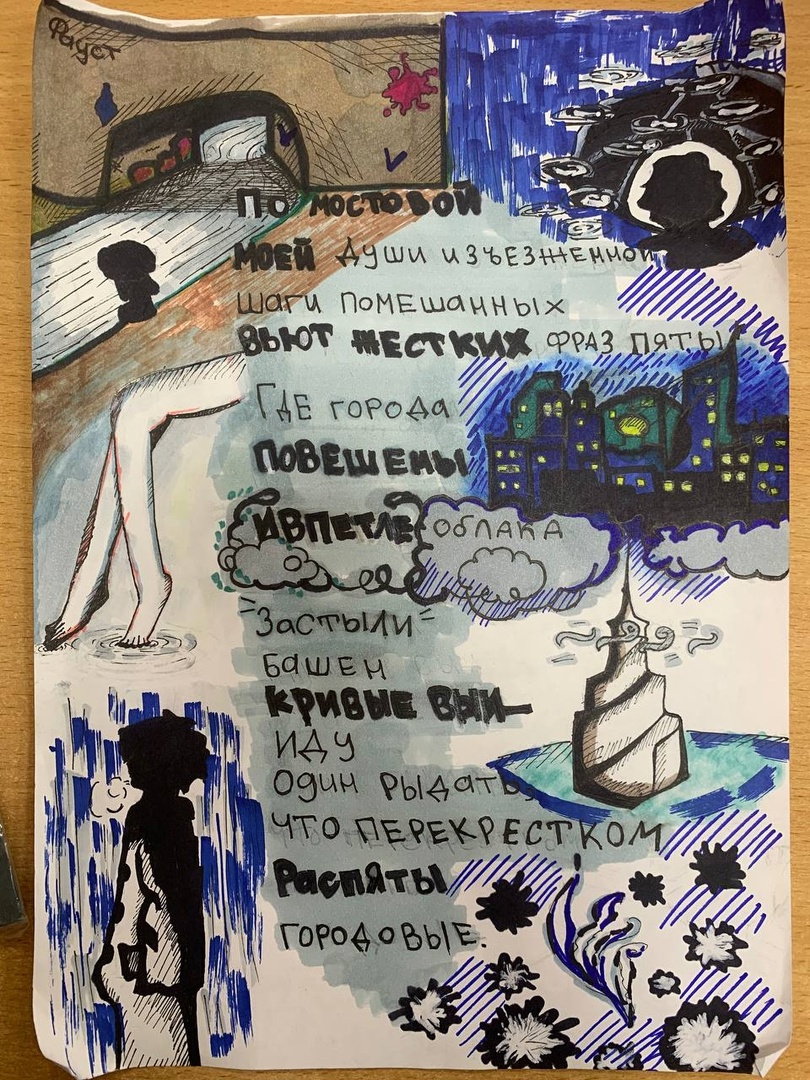 Фауст
По мостовой
моей души изъезженной
шаги помешанных
вьют жестких фраз пяты
Где города
повешены
и в петле облака
"Застыли"
башен
кривые выи
иду
один рыдать,
что перекрестком
распяты
городовые.